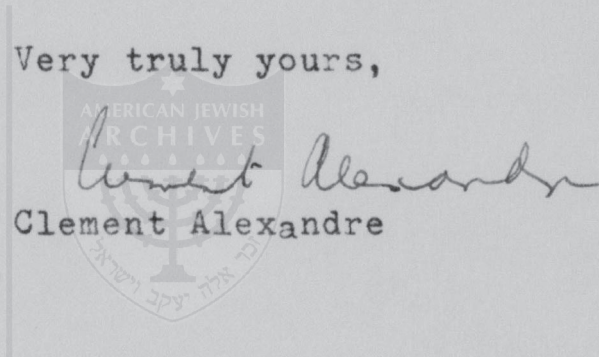 Very truly yours,
AMERICAN JEWISH
ARCHIVES
Clement Alexandre
Clement Alexandre
זכר אלה יעקב וישראל